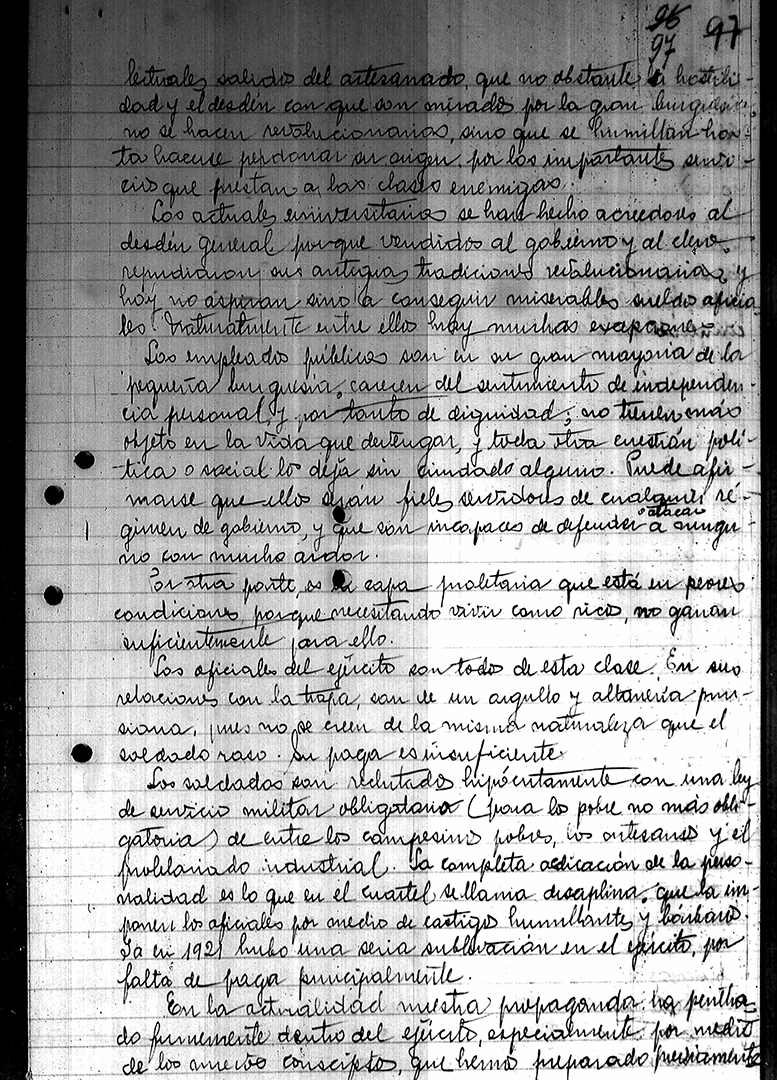 96
97 97
lectuales salidos del artesanado, que no obstante la hostili-
dad y el desdén con que son mirados por la gran burguesía,
no se hacen revolucionarios, sino que se humillan has-
ta hacerse perdonar su origen por los importantes servi-
cios que prestan a las clases enemigas.
Los actuales universitarios se han hecho acreedores al
desdén general porque vendidos al gobierno y al clero,
repudiaron sus antiguas tradiciones revolucionarias, y
hoy no aspiran sino a conseguir miserables sueldos oficia-
les. Naturalmente entre ellos hay muchas
Los empleados públicos son en su gran mayoría de la
pequeña burguesía, carecen del sentimiento de independen-
cia personal, y por tanto de dignidad; no tienen más
objeto en la vida que devengar, y toda otra cuestión polí-
tica o social los deja sin cuidado alguno. Puede afir-
marse que ellos serán fieles servidores de cualquier ré-
gimen de gobierno, y que son incapaces de defender o atacar a ningu-
no con mucho ardor.
Por otra parte, es la capa proletaria que está en peores
condiciones, porque necesitando vivir como rico, no ganan
suficientemente para ello.
Los oficiales del ejército son todo de esta clase. En sus
relaciones con la tropa, son de un orgullo y altanería pru-
siana, pues no se creen de la misma naturaleza que el
soldado raso. Su paga es insuficiente.
Los soldados son reclutados hipócritamente con una ley
de servicio militar obligatorio (para los pobre no más obli-
gatorio) de entre los campesinos pobres, los artesanos y el
proletariado industrial. La completa abdicación de la perso-
nalidad es lo que en el cuartel se llama disciplina, que la im-
ponen los oficiales por medio de castigos humillantes y bárbaros.
Ya en 1921 hubo una seria sublevación en el ejército, por
falta de paga principalmente.
En la actualidad nuestra propaganda ha penetra-
do firmemente dentro del ejército, especialmente por medio
de los nuevos conscriptos, que hemos preparado previamente